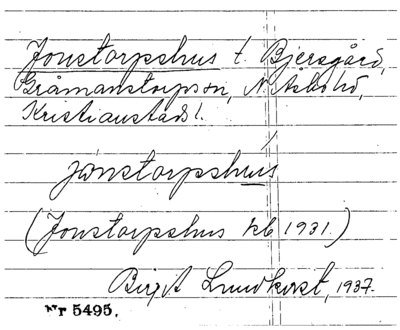 Jonstorpshus t. Bjersgård,
Gråmanstorps sn, N. Åsbo hd,
Kristianstads l.
jònstorpshùs
(Jonstorpshus kb 1931.)
Birgit Lundkvist, 1937.
Nr 5495.